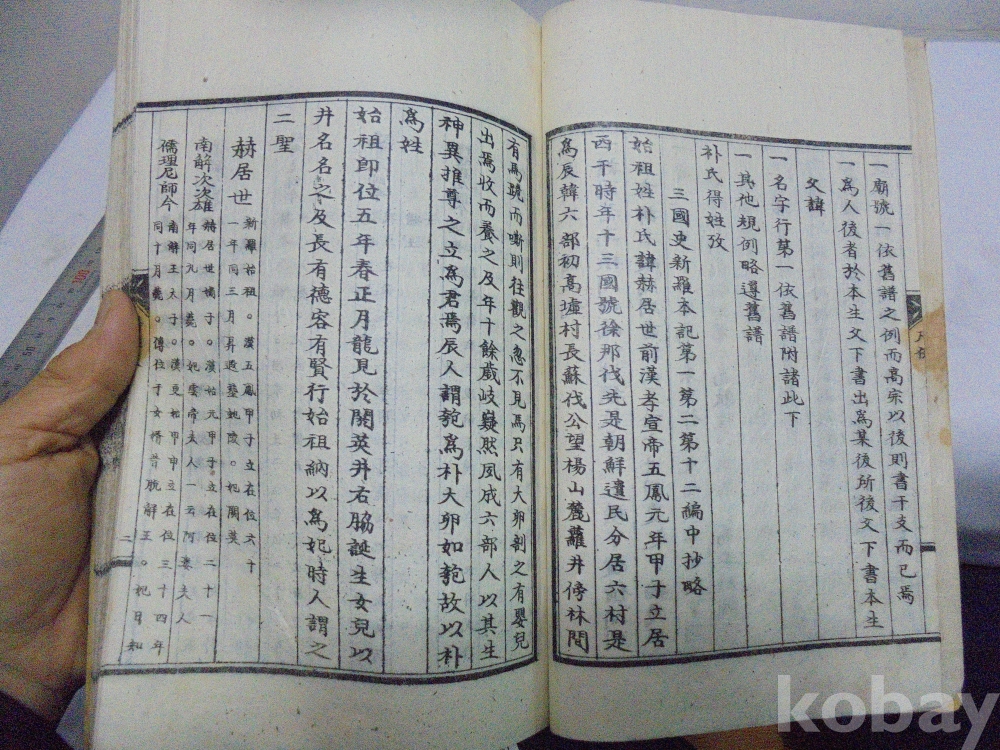 一廟號一依舊譜之例而高宗以後則書干支而已焉
一爲人後者於本生父下書出爲某後所後父下書本生
父諱
一名字行第一依舊譜附諸此下
一其他規例略遵舊譜
朴氏得姓攷
三國史新羅本記第一第二第十二編中抄略
始祖姓朴氏諱赫居世前漢孝宣帝五鳳元年甲子立居
西干時年十三國號徐那伐先是朝鮮遺民分居六村是
爲辰韓六部初高墟村長蘇伐公望楊山麓蘿井傍林間
有馬跪而嘶則往觀之忽不見馬只有大卵剖之有嬰兒
出焉收而養之及年十餘歲岐嶷然夙成六部人以其生
神異推尊之立爲君焉辰人謂瓠爲朴大卵如瓠故以朴
爲姓
始祖卽位五年春正月龍見於閼英井右脇誕生女兒以
井名名之及長有德容有賢行始祖納以爲妃時人謂之
二聖
赫居世
新羅始祖。漢五鳳甲子立在位六十
一年同三月昇遐墊虵陵。妃閼英
南解次次雄
赫居世嫡子。漢始元甲子立在位二十一
年同九月薨。妃雲帝夫人一云阿婁夫人
儒理尼師今
南解王太子。漢更始甲申立在位三十四年
同十月薨。傳位于女婿昔脫解王。妃日知
二
kobay